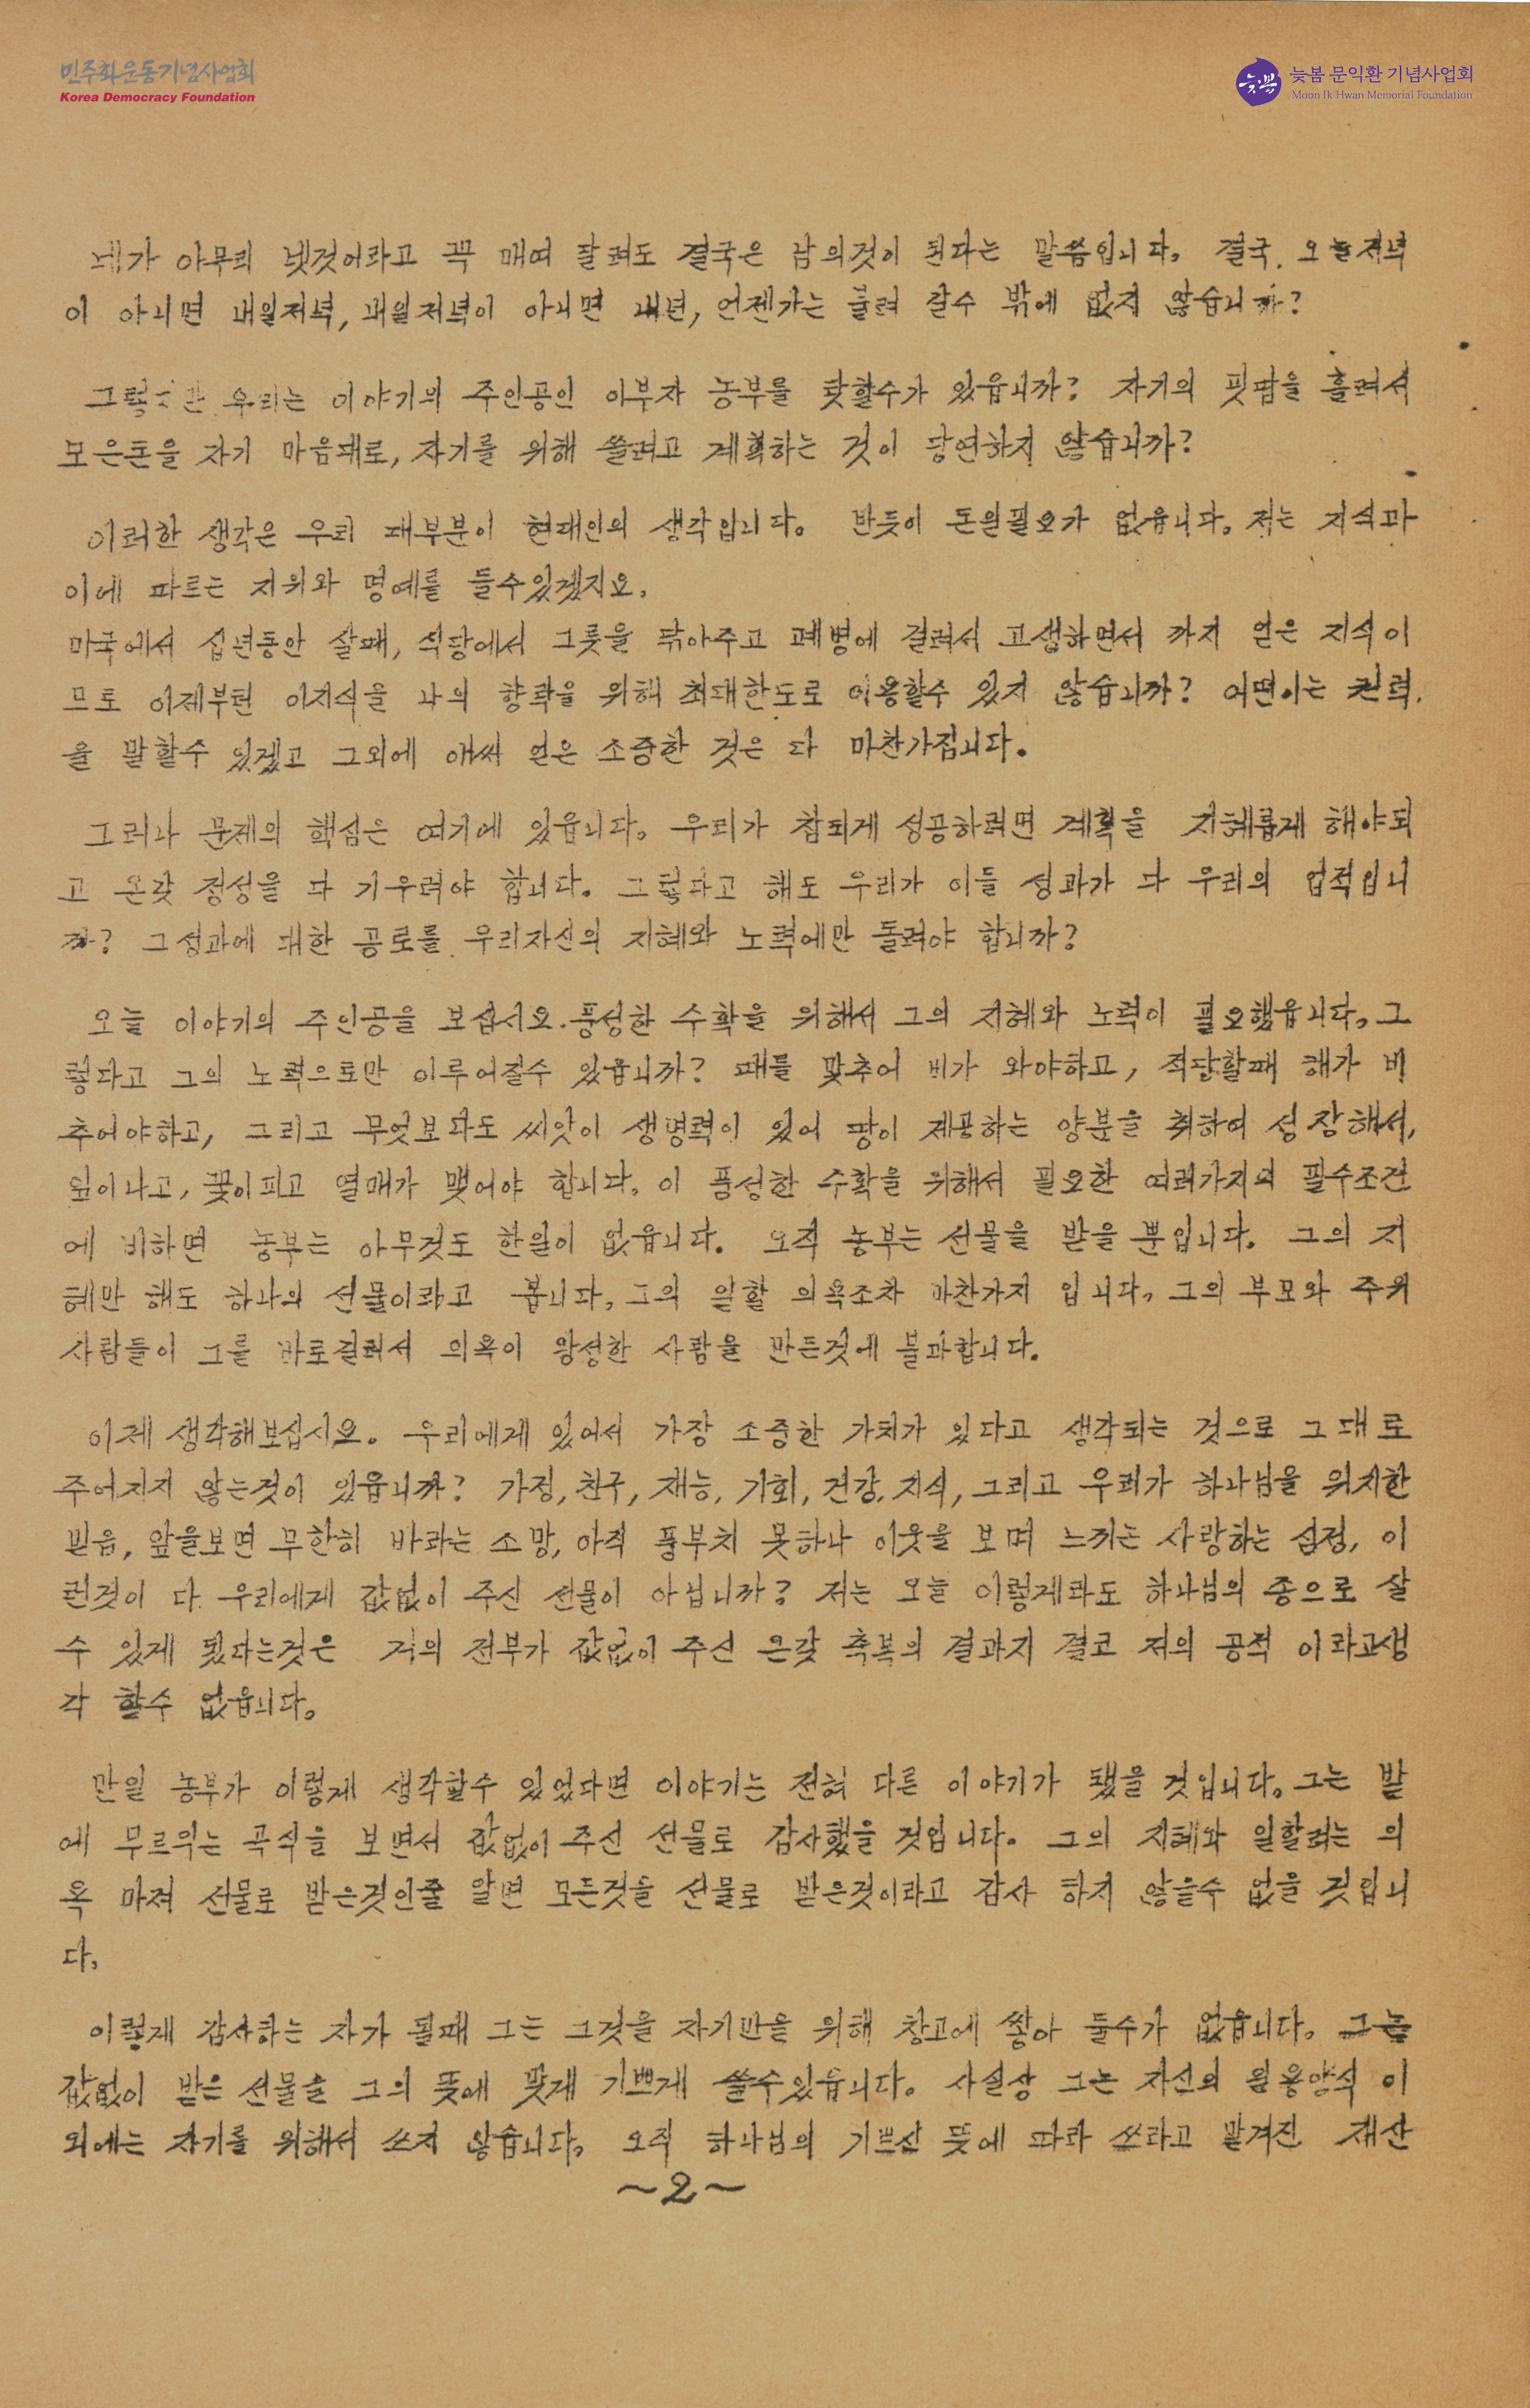 민주화운동기념사업회
Korea Democracy Foundation
늦봄
늦봄 문익환 기념사업회
Moon Ik Hwan Memorial Foundation
네가 아무리 넷것이라고 꼭 매여 달려도 결국은 남의것이 된다는 말씀입니다. 결국 오늘저녁
이 아니면 내일저녁, 내일저녁이 아니면 내년, 언젠가는 불려 갈수 밖에 없지 않습니까?
우리는 이야기의 주인공인 이부자 농부를 탓할수가 있읍니까? 자기의 핏땀을 흘려서
모은돈을 자기 마음대로, 자기를 위해 쓸려고 계획하는 것이 당연하지 않습니까?
이러한 생각은 우리 대부분이 현대인의 생각입니다. 반듯이 돈일필요가 없읍니다. 저는 지식과
이에 따르는 지위와 명예를 들수있겠지요.
미국에서 십년동안 살때, 식당에서 그릇을 닦아주고 폐병에 걸려서 고생하면서 까지 얻은 지식이
므로 이제부턴 이지식을 나의 향락을 위해 최대한도로 이용할수 있지 않습니까? 어떤이는 권력
을 말할수 있겠고 그외에 애써 얻은 소중한 것은 다 마찬가집니다.
그러나 문제의 핵심은 여기에 있읍니다. 우리가 참되게 성공하려면 계획을 지혜롭게 해야되
고 온갖 정성을 다 기우려야 합니다. 그렇다고 해도 우리가 이들 성과가 다 우리의 업적입니
까? 그성과에 대한 공로를 우리자신의 지혜와 노력에만 돌려야 합니까?
오늘 이야기의 주인공을 보십시요. 풍성한 수확을 위해서 그의 지혜와 노력이 필요했읍니다. 그
렇다고 그의 노력으로만 이루어질수 있읍니까? 때를 맞추어 비가 와야하고, 적당할때 해가 비
추어야하고, 그리고 무엇보다도 씨앗이 생명력이 있어 땅이 제공하는 양분을 취하여 성장해서,
잎이나고, 꽃이피고 열매가 맺어야 합니다. 이 풍성한 수확을 위해서 필요한 여러가지의 필수조건
에 비하면 농부는 아무것도 한일이 없읍니다. 오직 농부는 선물을 받을 뿐입니다. 그의 지
혜만 해도 하나의 선물이라고 봅니다. 그의 일할 의욕조차 마찬가지 입니다. 그의 부모와 주위
사람들이 그를 바로걸려서 의욕이 왕성한 사람을 만든것에 불과합니다.
이제 생각해보십시요. 우리에게 있어서 가장 소중한 가치가 있다고 생각되는 것으로 그대로
주어지지 않는것이 있읍니까? 가정, 친구, 재능, 기회, 건강, 지식, 그리고 우리가 하나님을 위지한
믿음, 앞을보면 무한히 바라는 소망, 아직 풍부치 못하나 이웃을 보며 느끼는 사랑하는 심정, 이
런것이 다 우리에게 값없이 주신 선물이 아닙니까? 저는 오늘 이렇게라도 하나님의 종으로 살
수 있게 됬다는것은 거의 전부가 값없이 주신 온갖 축복의 결과지 결코 저의 공적 이라고생
각 할수 없읍니다.
만일 농부가 이렇게 생각할수 있었다면 이야기는 전혀 다른 이야기가 됐을 것입니다. 그는 밭
에 무르익는 곡식을 보면서 값없이 주신 선물로 감사했을 것입니다. 그의 지혜와 일할려는 의
욕 마져 선물로 받은것인줄 알면 모든것을 선물로 받은것이라고 감사 하지 않을수 없을 것입니
다.
이렇게 감사하는 자가 될때 그는 그것을 자기만을 위해 창고에 쌓아 둘수가 없읍니다. 그는
값없이 받은 선물을 그의 뜻에 맞게 기쁘게 쓸수있읍니다. 사실상 그는 자신의 일용양식 이
외에는 자기를 위해서 쓰지 않습니다. 오직 하나님의 기쁘신 뜻에 따라 쓰라고 맡겨진 재산
~2~